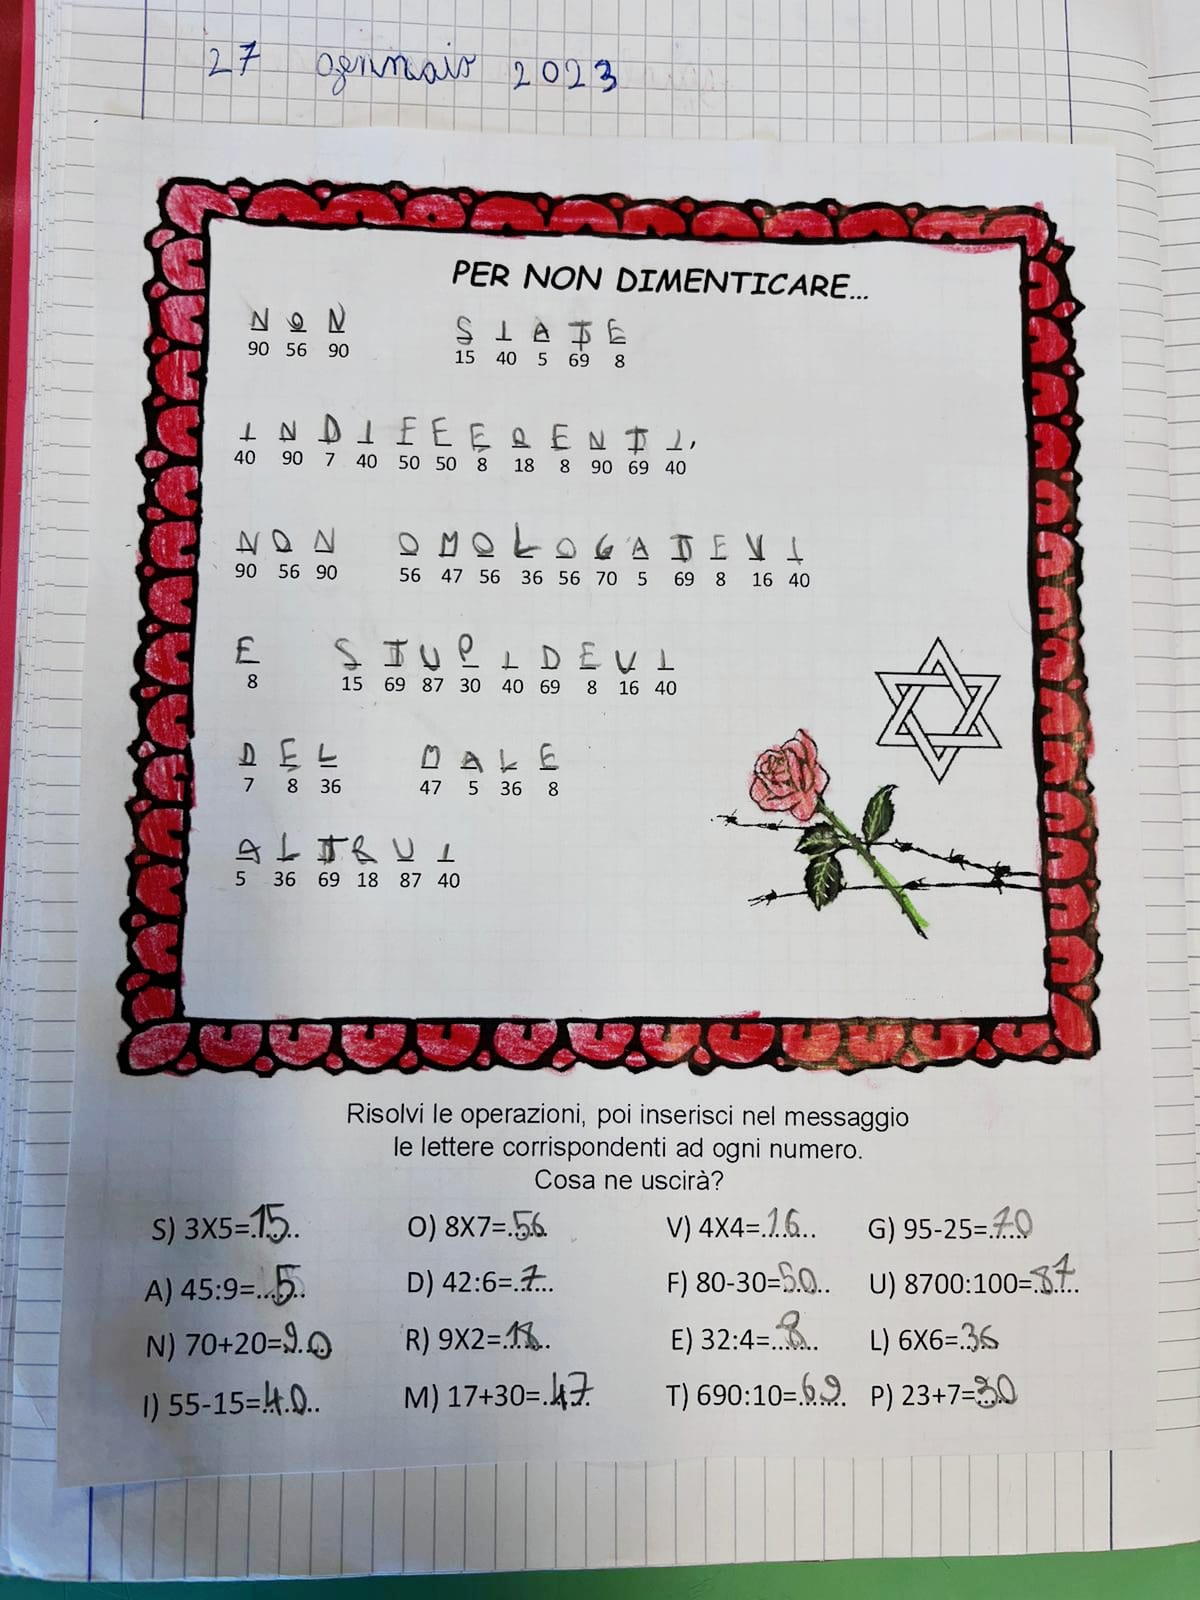 27 gennaio 2023
PER NON DIMENTICARE...
NON SIATE
90 56 90 15 40 5 69 8
INDIFFERENTI,
40 90 7 40 50 50 8 18 8 90 69 40
NON OMOLOGATEVI
90 56 90 56 47 56 36 56 70 5 69 8 16 40
E STUPIDEVI
8 15 69 87 30 40 69 8 16 40
DEL MALE
7 8 36 47 5 36 8
ALTRUI
5 36 69 18 87 40
Risolvi le operazioni, poi inserisci nel messaggio
le lettere corrispondenti ad ogni numero.
Cosa ne uscirà?
S) 3X5=15 O) 8X7=56 V) 4X4=16 G) 95-25=70
A) 45:9=5 D) 42:6=7 F) 80-30=50 U) 8700:100=87
N) 70+20=90 R) 9X2=18 E) 32:4=8 L) 6X6=36
I) 55-15=40 M) 17+30=47 T) 690:10=69 P) 23+7=30